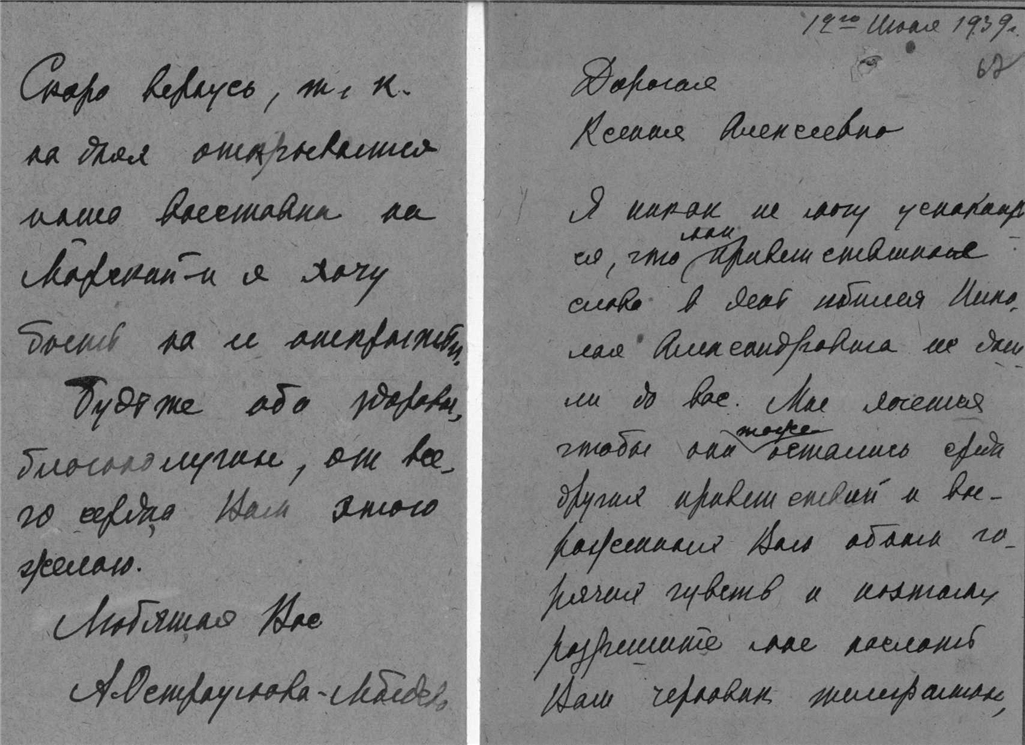 12го Июля 1939 г.
67
Дорогая
Ксения Алексеевна
Я никак не могу успокоить-
ся, что мои приветственные
слова в день юбилея Нико-
лая Александровича не дош-
ли до вас. Мне хочется
чтобы они тоже остались среди
других приветствий и вы-
раженных Вам обоим го-
рячих чувств и поэтому
разрешите мне послать
Вам черновик телеграммы,
Скоро вернусь, т. к.
на днях открывается
наша выставка на
Морской и я хочу
быть на ее открытии.
Будьте же оба здоровы,
благополучны, от все-
го сердца Вам этого
желаю.
Любящая Вас
А. Остроумова-Лебедева